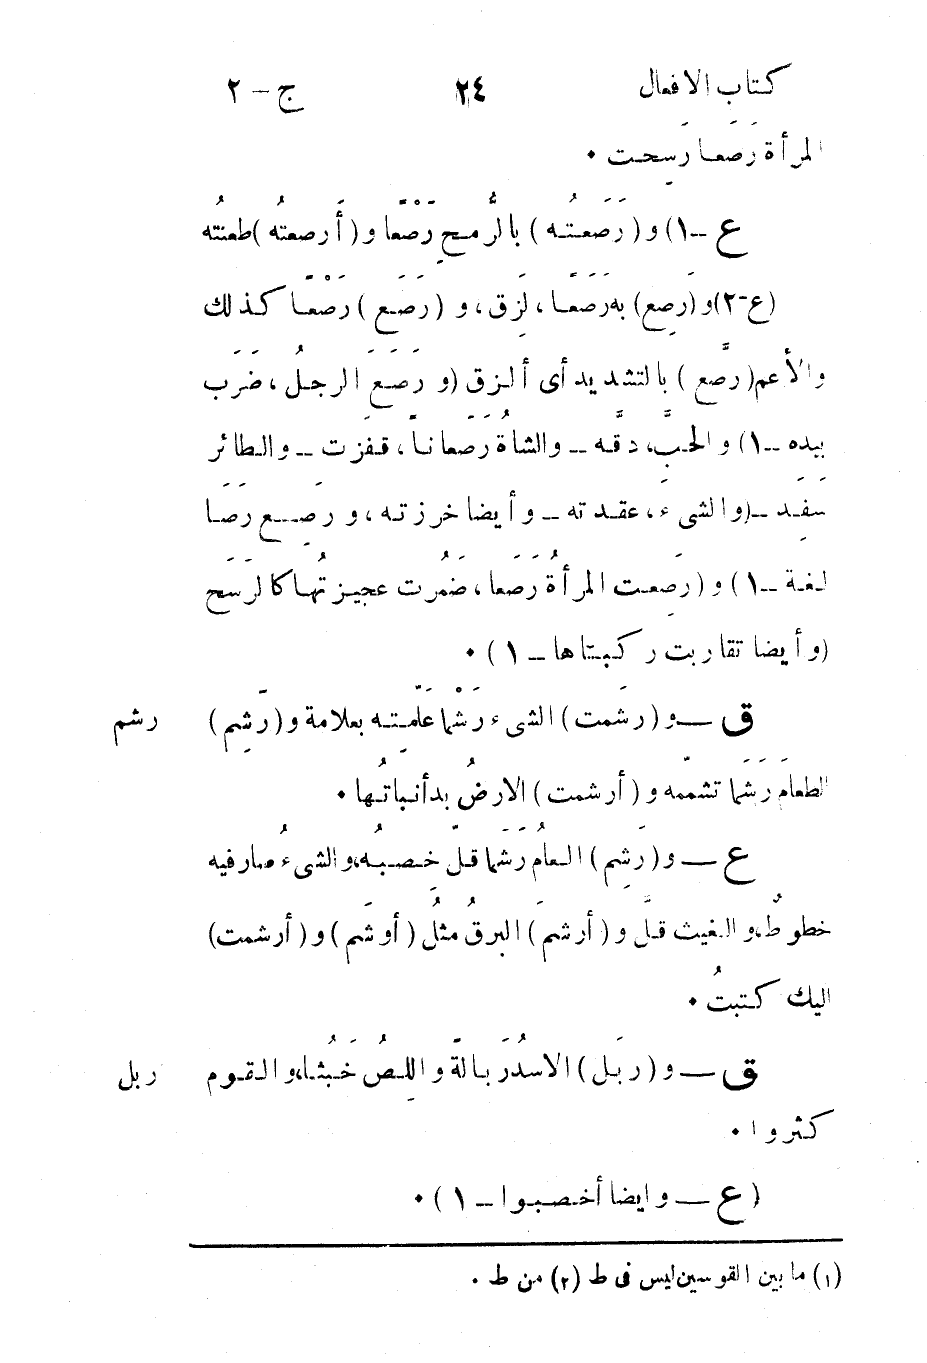 كتاب الافعال ٢٤ ج – ٢
المرأة رَصَعا رَسِحت •
ع – ١) و ( رَصَعتُه ) بالرُّمحِ رَصْعًا و ( أَرصعتُه ) طعنتُه
(ع – ٢) و (رصِع) به رَصَعًا، لَزِق، و (رَصَع) رَصْعًا كذلك
والأعم ( رصَّع ) بالتشديد أى ألزق (و رَصَعَ الرجلُ، ضَرَب
بيده – ١) و الحبَّ، دقَّه – والشاةُ رَصَعانًا، قفزت – والطائر
سَفِدَ – (والشىء، عقدته – وأيضا خرزته، و رصِع رَصَعا
لغة – ١) و ( رَصِعت المرأةُ رَصَعا، ضَمُرت عجيزتُها كالرَسَح
(و أيضا تقاربت ركبتاها – ١ ) •
ق – و ( رشَمت ) الشىء رَشْما عَلَّمتِه بعلامة و ( رَشِم ) رشم
الطعامَ رَشَما تشمّمه و ( أرشمت ) الارضُ بدأ نباتُها •
ع – و ( رَشِم ) العامُ رَشَما قلّ خِصبُه، والشىءُ صار فيه
خطوطٌ، و الغيث قلَّ و ( أرشمَ ) البرقُ مثلُ ( أوشَم ) و ( أرشمت )
اليك كتبتُ •
ق – و ( ربَل ) الاسدُ رَبالةً و اللِصُ خَبُثا، و القوم ربل
كثروا •
( ع – وايضا أخصبوا – ١ ) •
(١) ما بين القوسين ليس فى ط (٢) من ط •